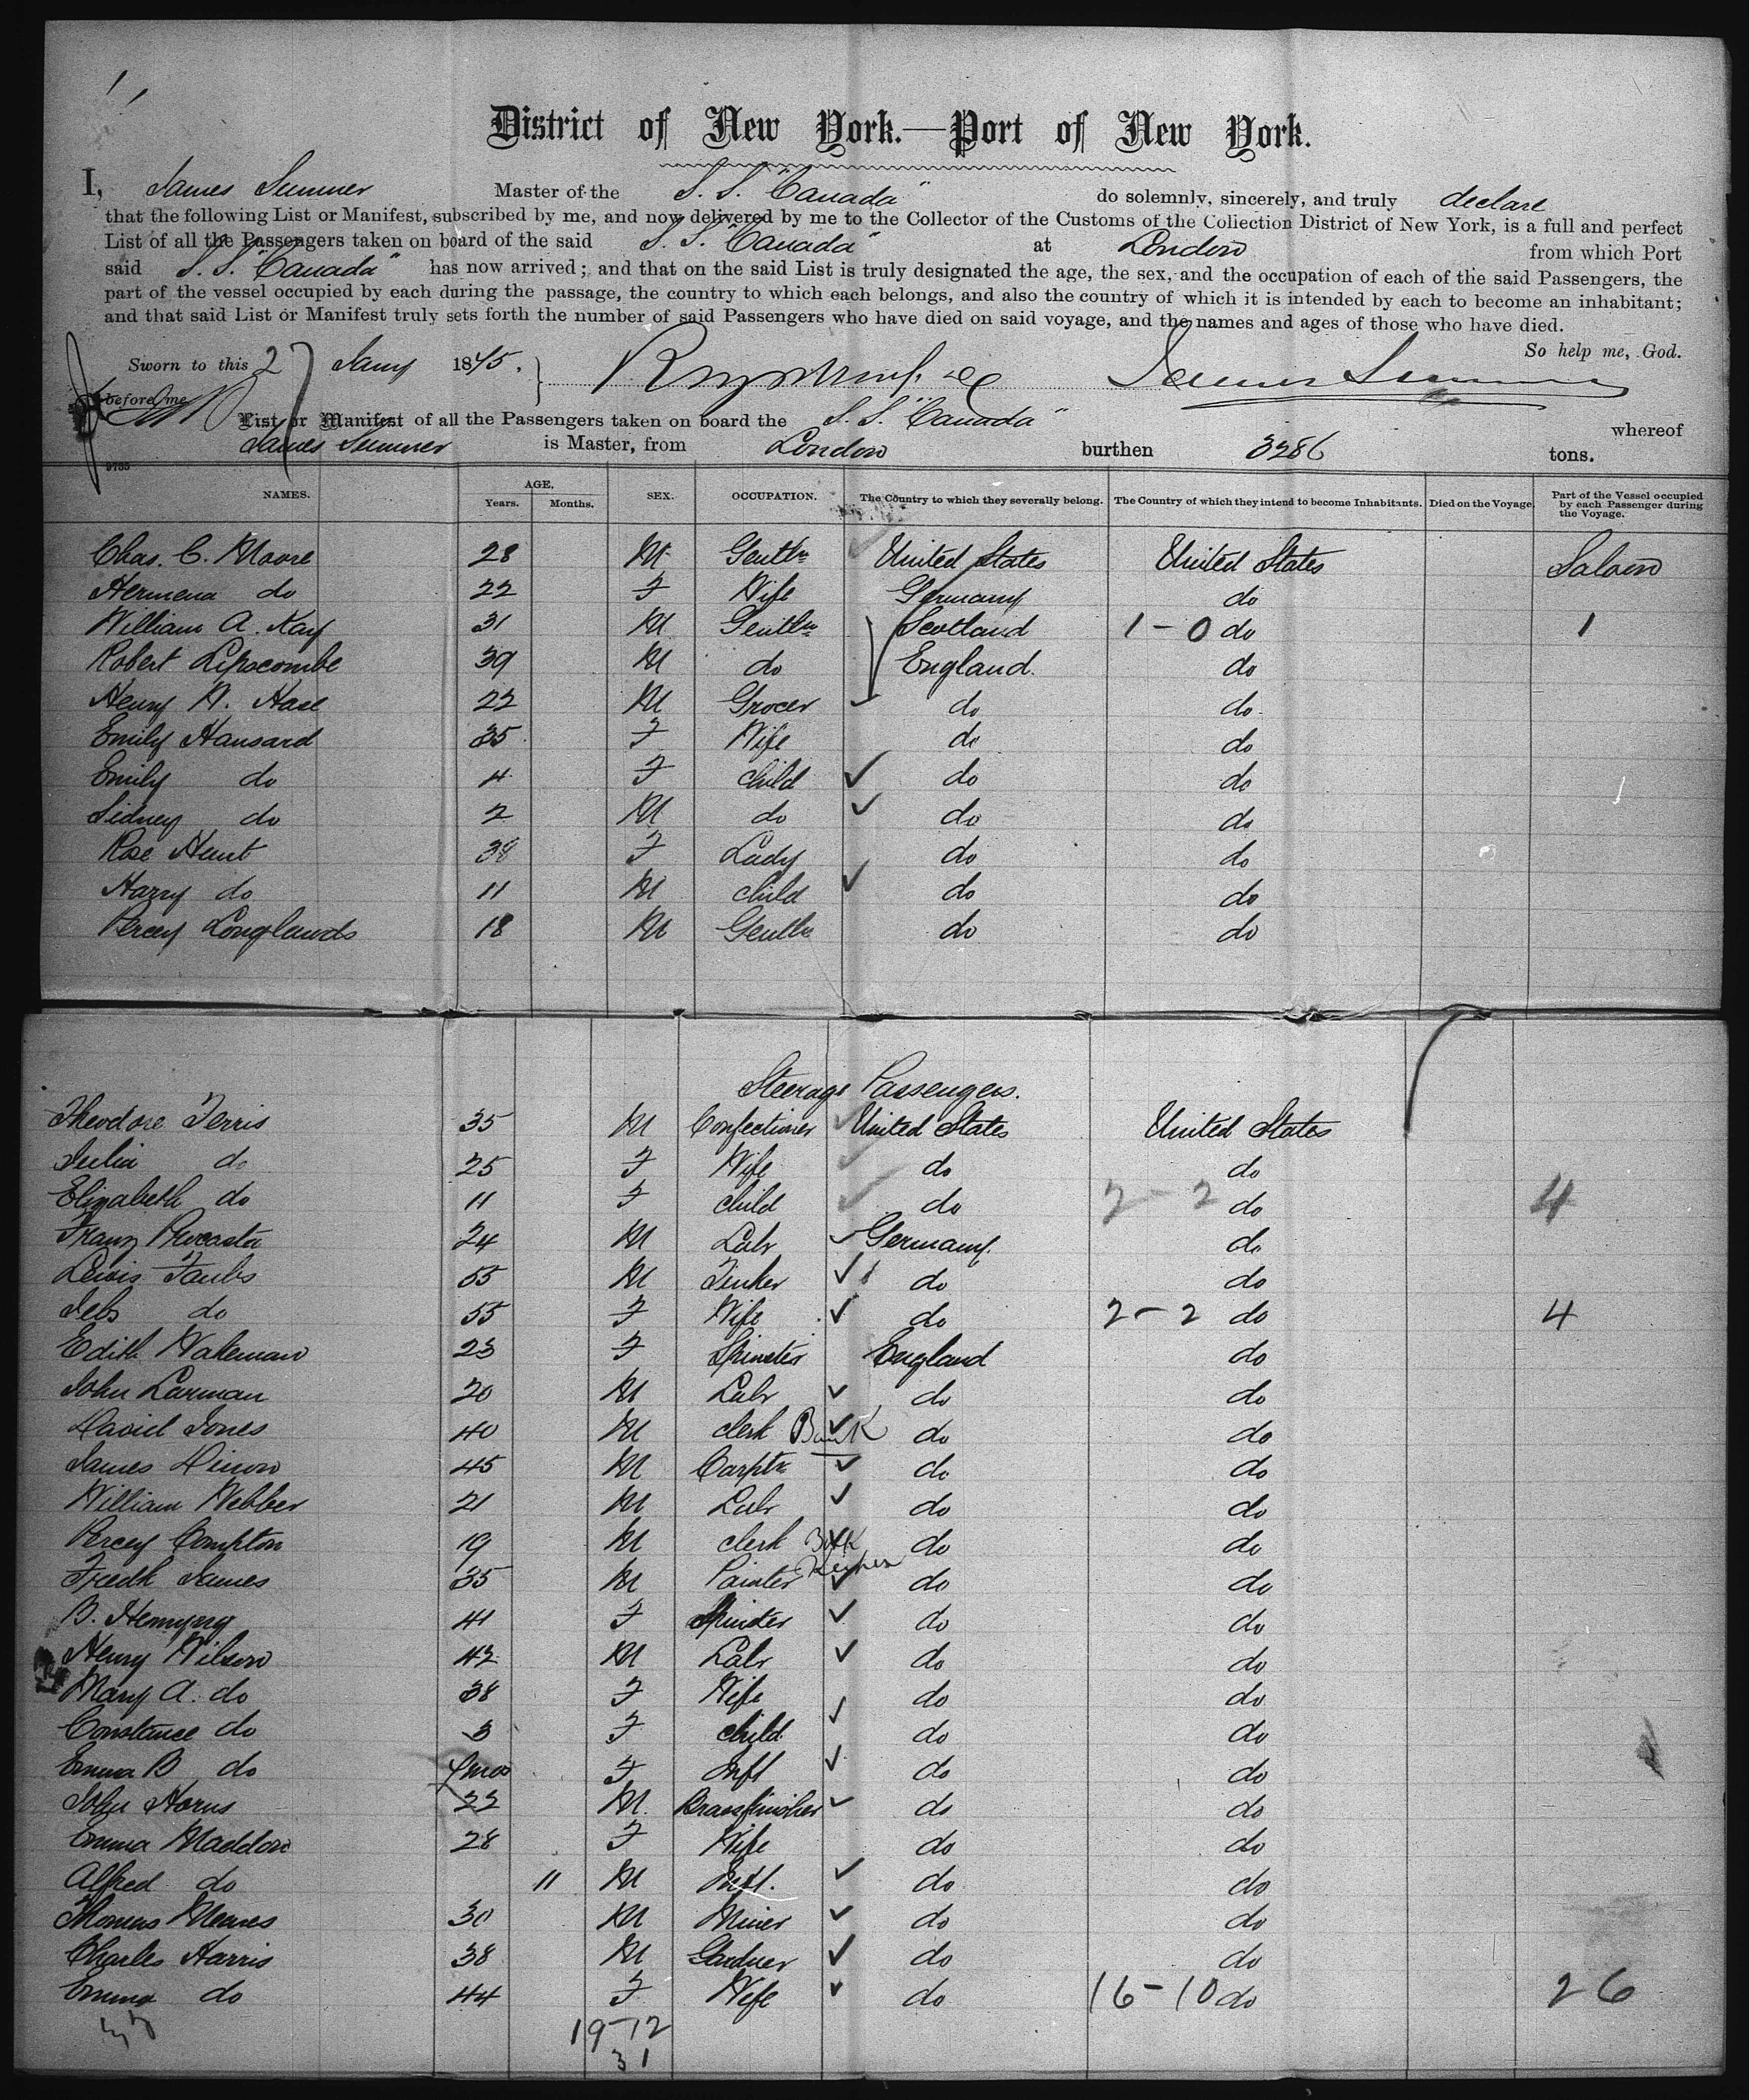 District of New York.—Port of New York.
I, James Sumner Master of the S. S. "Canada" do solemnly, sincerely, and truly declare
that the following List or Manifest, subscribed by me, and now delivered by me to the Collector of the Customs of the Collection District of New York, is a full and perfect
List of all the Passengers taken on board of the said S. S. "Canada" at London from which Port
said S. S. "Canada" has now arrived; and that on the said List is truly designated the age, the sex, and the occupation of each of the said Passengers, the
part of the vessel occupied by each during the passage, the country to which each belongs, and also the country of which it is intended by each to become an inhabitant;
and that said List or Manifest truly sets forth the number of said Passengers who have died on said voyage, and the names and ages of those who have died.
So help me, God.
Sworn to this 27 Jany 18 James Sumner
before me
List or Manifest of all the Passengers taken on board the S. S. "Canada" whereof
James Sumner is Master, from London burthen 3286 tons.
9735
NAMES. AGE. Years. Months. SEX. OCCUPATION. The Country to which they severally belong. The Country of which they intend to become Inhabitants. Died on the Voyage. Part of the Vessel occupied by each Passenger during the Voyage.
Chas. C. Moore 28 M Gentln United States United States Saloon
Hermena do 22 F Wife Germany do
William A. Kay 31 M Gentln Scotland 1-0 do 1
Robert Lipscombe 39 M do England do
Henry H. Hase 22 M Grocer do do
Emily Hansard 35 F Wife do do
Emily do 4 F child do do
Sidney do 2 M do do do
Rose Hunt 38 F Lady do do
Harry do 11 M child do do
Percy Longlands 18 M Gentln do do
Steerage Passengers.
Theodore Ferris 35 M Confectioner United States United States
Julia do 25 F Wife do do
Elizabeth do 11 F child do 2-2 do 4
Franz 24 M Labr Germany do
Lewis Faubs 55 M Tinker do do
do 55 F Wife do 2-2 do 4
Edith Wakeman 23 F Spinster England do
John Larman 20 M Labr do do
David Jones 40 M clerk Bank do do
James 45 M Carptr do do
William Webber 21 M Labr do do
Percy Compton 19 M clerk Book Keeper do do
Fredk James 35 M Painter do do
B. 41 F Spinster do do
Henry Wilson 42 M Labr do do
Mary A. do 38 F Wife do do
Constance do 3 F child do do
Emma B do mos F Inft do do
John Horns 22 M Brassfinisher do do
Emma Maddon 28 F Wife do do
Alfred do 11 M Inft. do do
Thomas Meares 30 M Miner do do
Charles Harris 38 M Gardner do do
Emma do 44 F Wife do 16-10 do 26
19-12
31